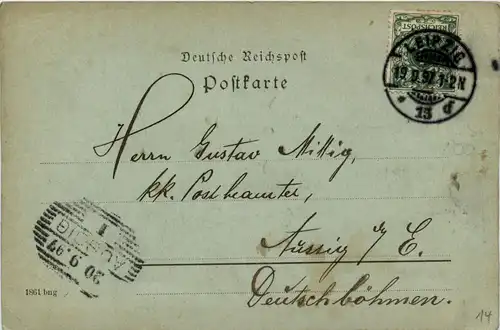 REICHSPOST
LEIPZIG
19.9.97.1-2N
13
d
Deutsche Reichspost
Postkarte
Herrn Gustav Mittig,
kk. Postbeamter,
Aussig a/E.
Deutschböhmen.
AUSSIG
1
20 9 97
1861 bug
14